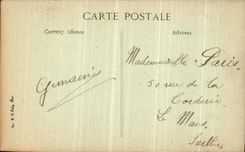 CARTE POSTALE
Correspondance
Adresse
Mademoiselle Paris,
50 rue de la
Germaine
Le Mans,
Sarthe